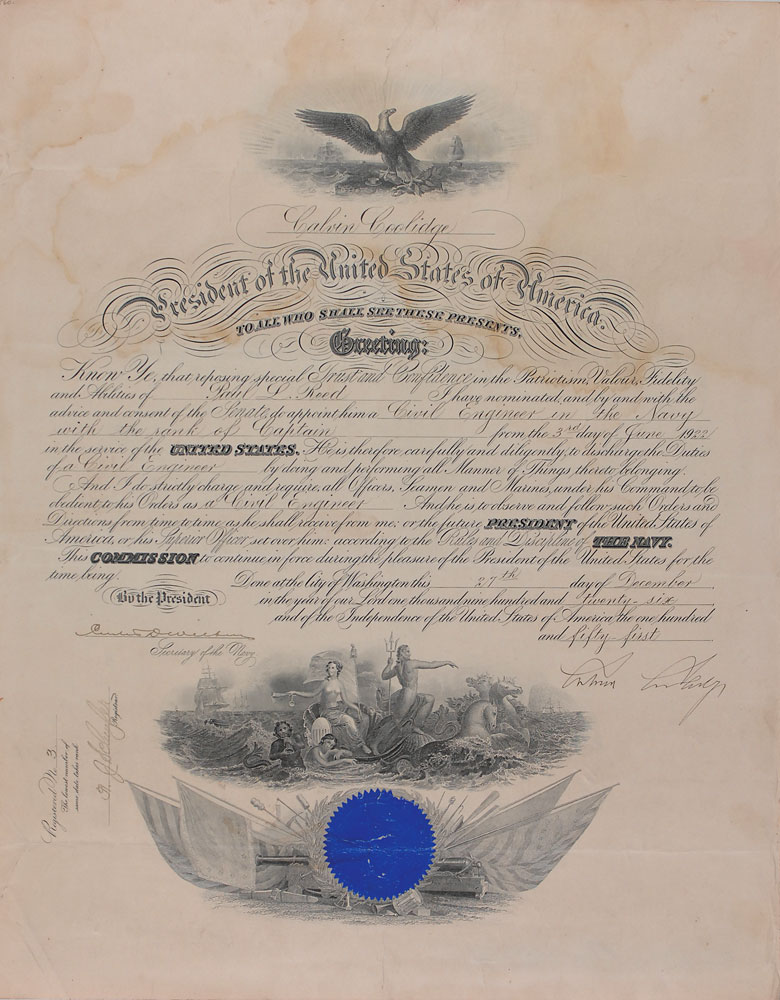 Calvin Coolidge
President of the United States of America.
TO ALL WHO SHALL SEE THESE PRESENTS,
Greeting:
Know Ye, that reposing special Trust and Confidence in the Patriotism, Valour, Fidelity
and Abilities of Paul L. Reed I have nominated, and by and with the
advice and consent of the Senate, do appoint him a Civil Engineer in the Navy
with the rank of Captain from the 3rd day of June 1922
in the service of the UNITED STATES. He is therefore, carefully and diligently, to discharge the Duties
of a Civil Engineer by doing and performing all Manner of Things thereto belonging.
And I do strictly charge, and require, all Officers, Seamen and Marines, under his Command, to be
obedient to his Orders as a Civil Engineer And he is to observe and follow such Orders and
Directions, from time to time, as he shall receive from me, or the future PRESIDENT of the United States of
America, or his Superior Officer set over him, according to the Rules and Discipline of THE NAVY.
This COMMISSION to continue in force during the pleasure of the President of the United States for the
time being.
Done at the City of Washington this 27th day of December
By the President
in the year of our Lord one thousand nine hundred and twenty-six
and of the Independence of the United States of America the one hundred
and fifty-first
Secretary of the Navy
Calvin Coolidge
Registered No. 3
The lowest number of
same date takes rank.
Registrar